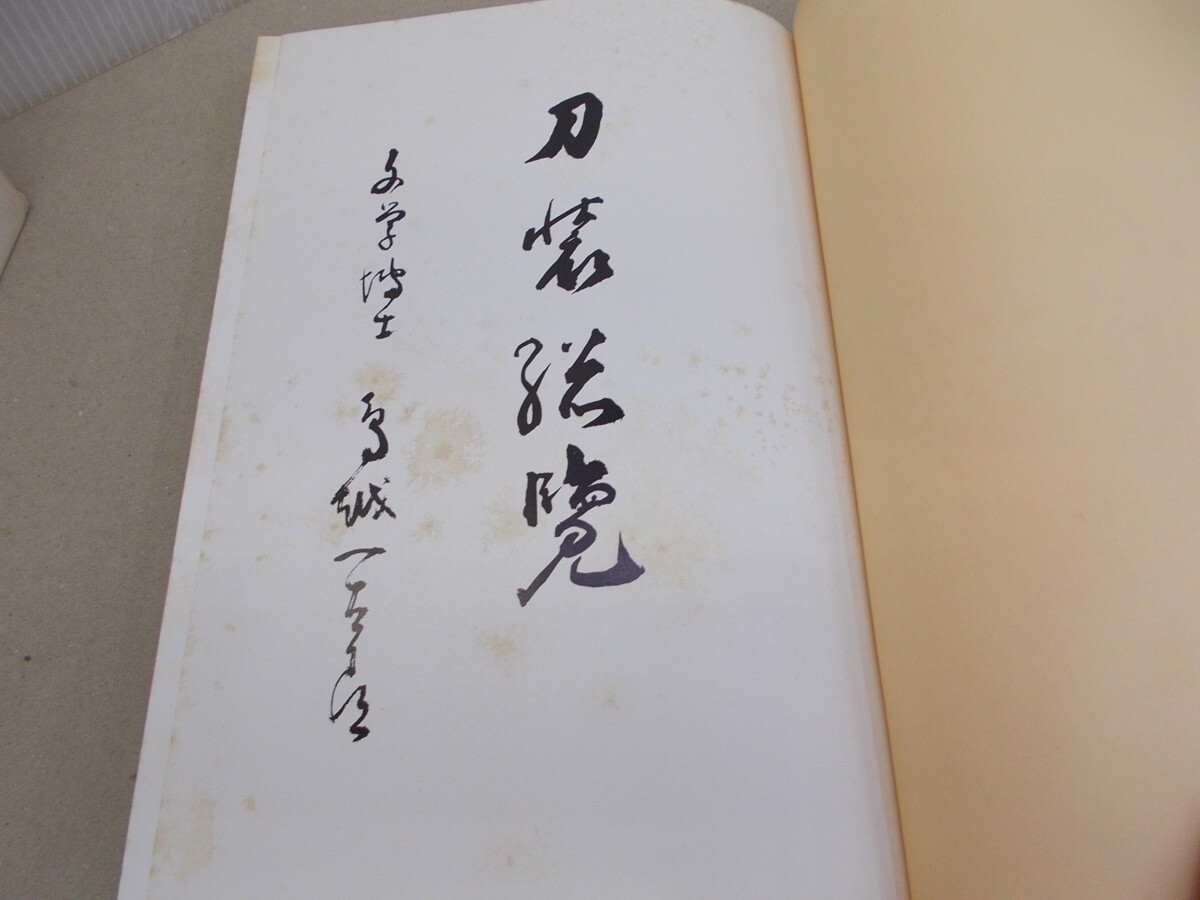 刀装総覧
文学博士 鳥越一太郎